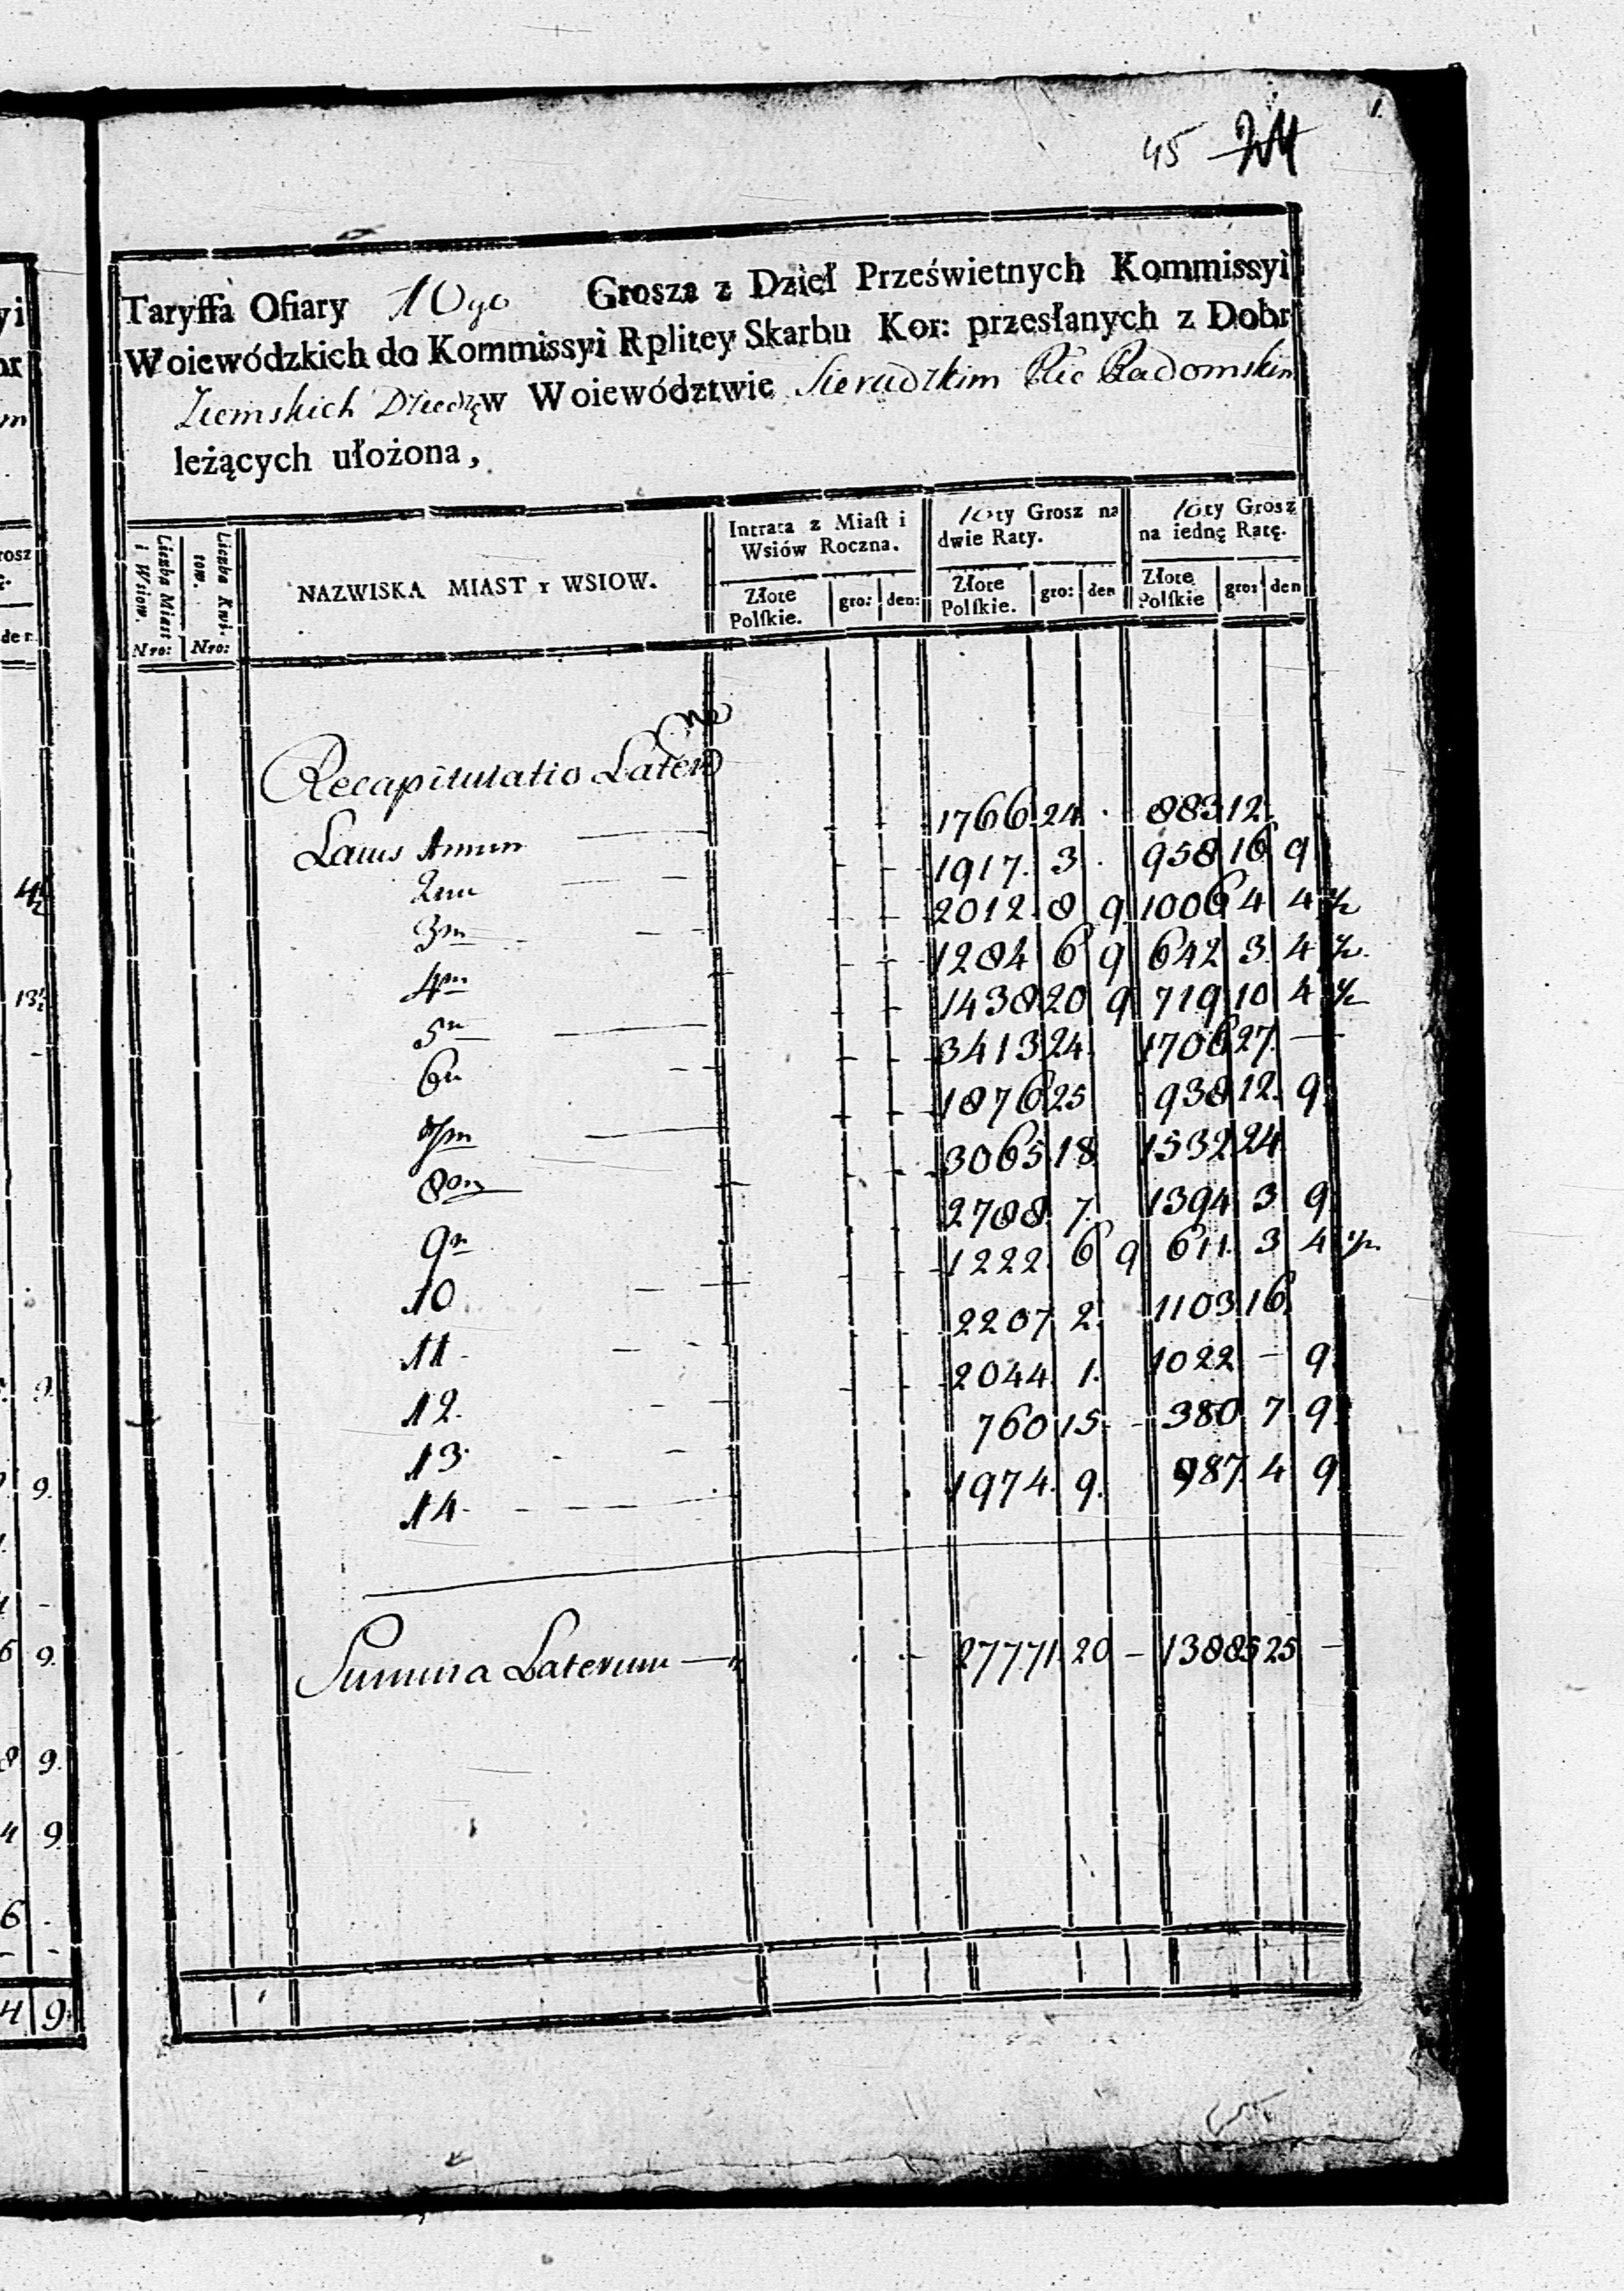 45 24
1.
Taryffa Ofiary 10go Grosza z Dzieł Prześwietnych Kommissyi
Woiewódzkich do Kommissyi Rplitey Skarbu Kor: przesłanych z Dobr
Ziemskich Dziedz: w Woiewództwie Sieradzkim Pcie Radomskim
leżących ułożona,
Liczba Miast i Wsiow. Nro:
Liczba Kwitow. Nro:
NAZWISKA MIAST y WSIOW.
Intrata z Miast i Wsiów Roczna.
10ty Grosz na dwie Raty.
10ty Grosz na iednę Ratę.
Złote Polskie. gro: den: Złote Polskie. gro: den Złote Polskie gro: den
Recapitulatio Laterum
Latus 1mum 1766 24 . 883 12.
2m 1917. 3 . 958 16 9
3m 2012. 8 9 1006 4 4 ½
4m 1284 6 9 642 3. 4 ½.
5m 1438 20 9 719 10 4 ½
6m 3413 24 1706 27. —
7m 1876 25 938 12. 9.
8m 3065 18 1532 24
9m 2788 7. 1394 3 9
10 1222. 6 9 611. 3 4 ½.
11 2207 2. 1103 16.
12. 2044. 1. 1022 — 9.
13. 760 15 - 380 7 9.
14 1974. 9. 987 4 9.
Summa Laterum 27771. 20 - 13885 25 -